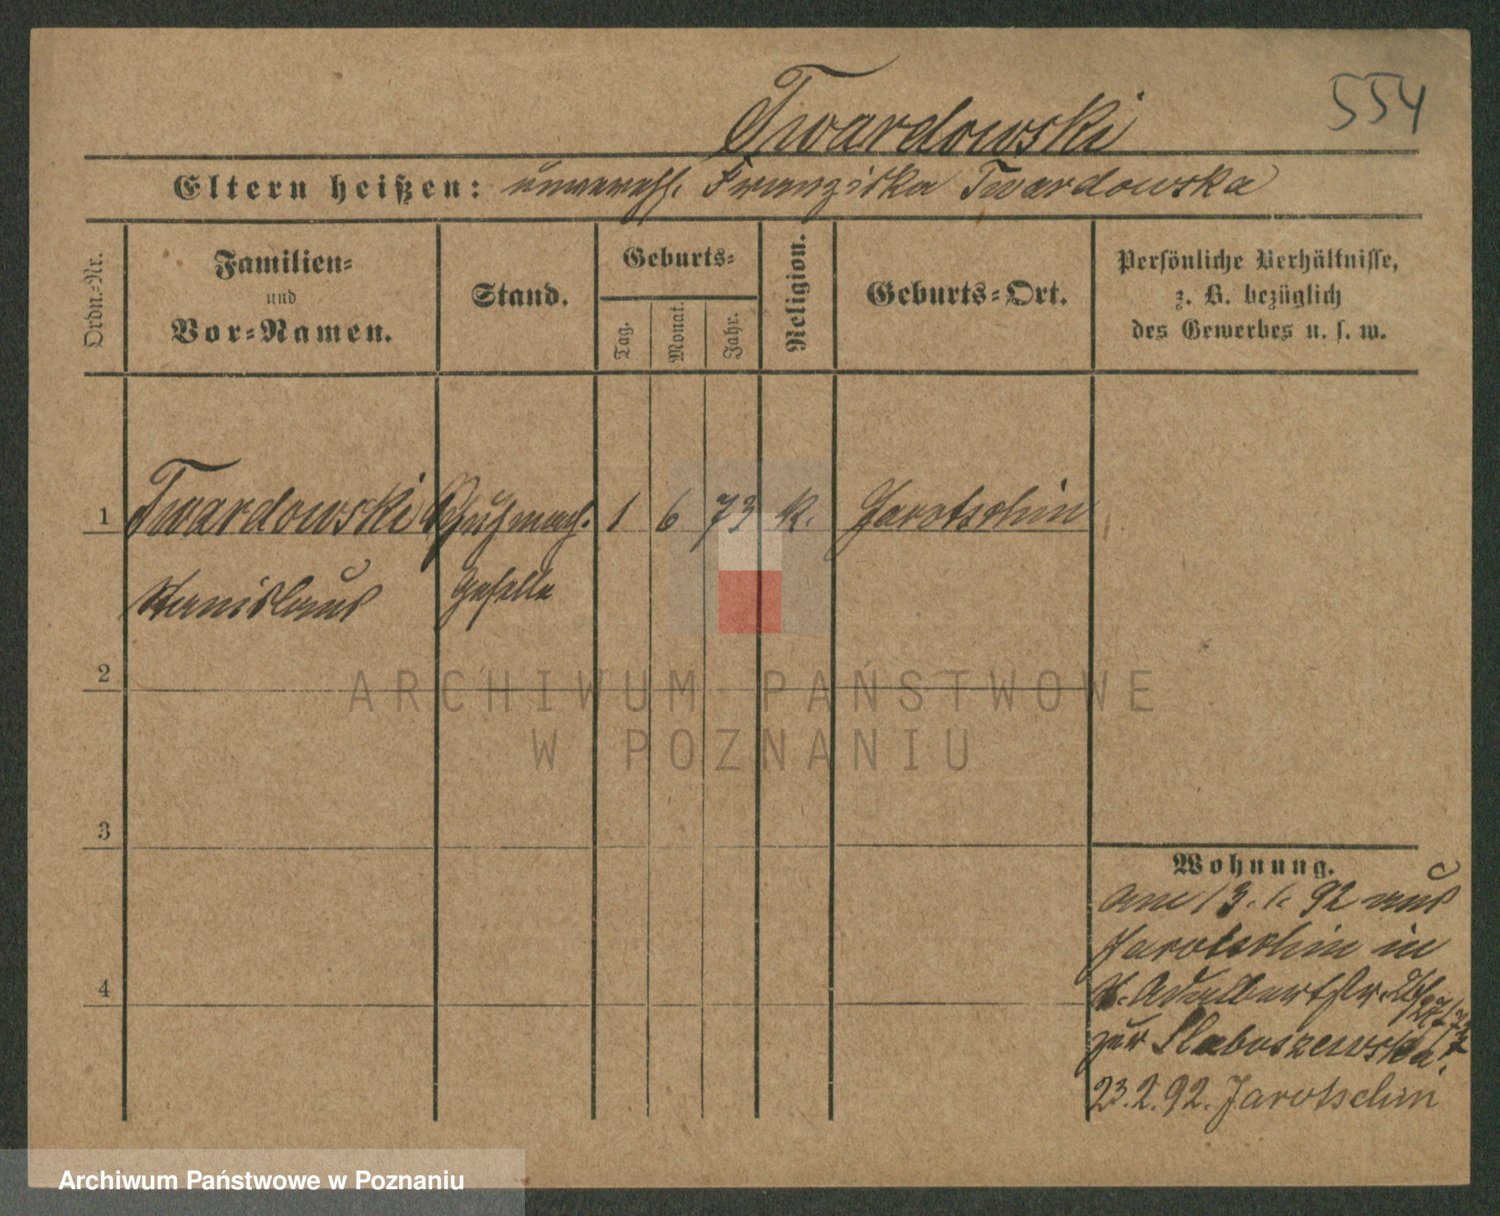 554
Twardowski
Eltern heißen: unvereh. Franziska Twardowska
Ordn.-Nr.
Familien-
und
Vor-Namen.
Stand.
Geburts-
Tag.
Monat.
Jahr.
Religion.
Geburts-Ort.
Persönliche Verhältnisse,
z. B. bezüglich
des Gewerbes u. s. w.
1 Twardowski Schuhmach. 1 6 73 k. Jarotschin
Stanislaus Geselle
2
3
4
Wohnung.
am 13.1. 92 aus
Jarotschin in
St. Adalbertstr.
zur Slaboszewska.
23.2.92. Jarotschin
ARCHIWUM PAŃSTWOWE
W POZNANIU
Archiwum Państwowe w Poznaniu